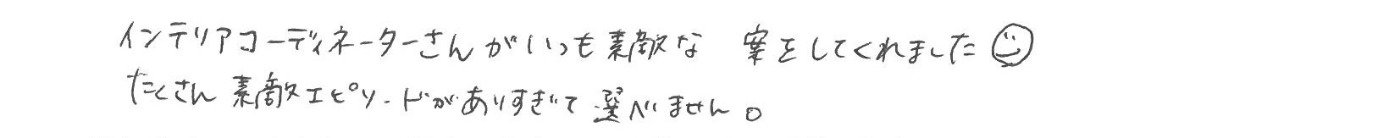 インテリアコーディネーターさんがいつも素敵な 案をしてくれました☺
たくさん素敵エピソードがありすぎて選べません。